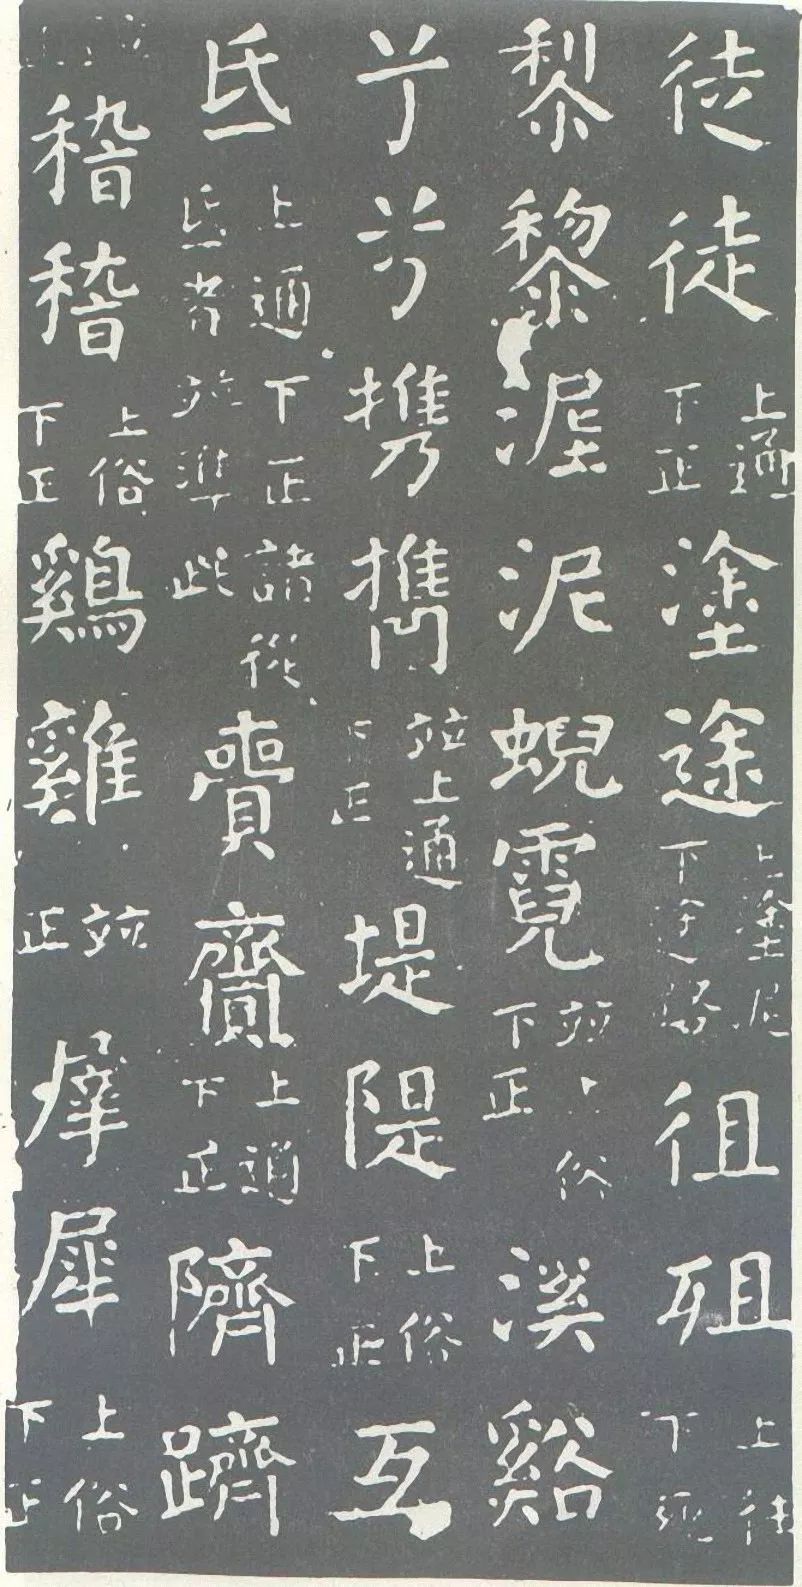 徒徒上通下正塗途上塗泥下途路徂殂上往下死
黎黎埿泥蜺霓並上俗下正溪谿
兮兮携㩦並上通下正堤隄上俗下正互
氐上通下正諸從氐者並準此賷齎上通下正隮躋
並正稽稽上俗下正鷄雞並正犀犀上俗下正